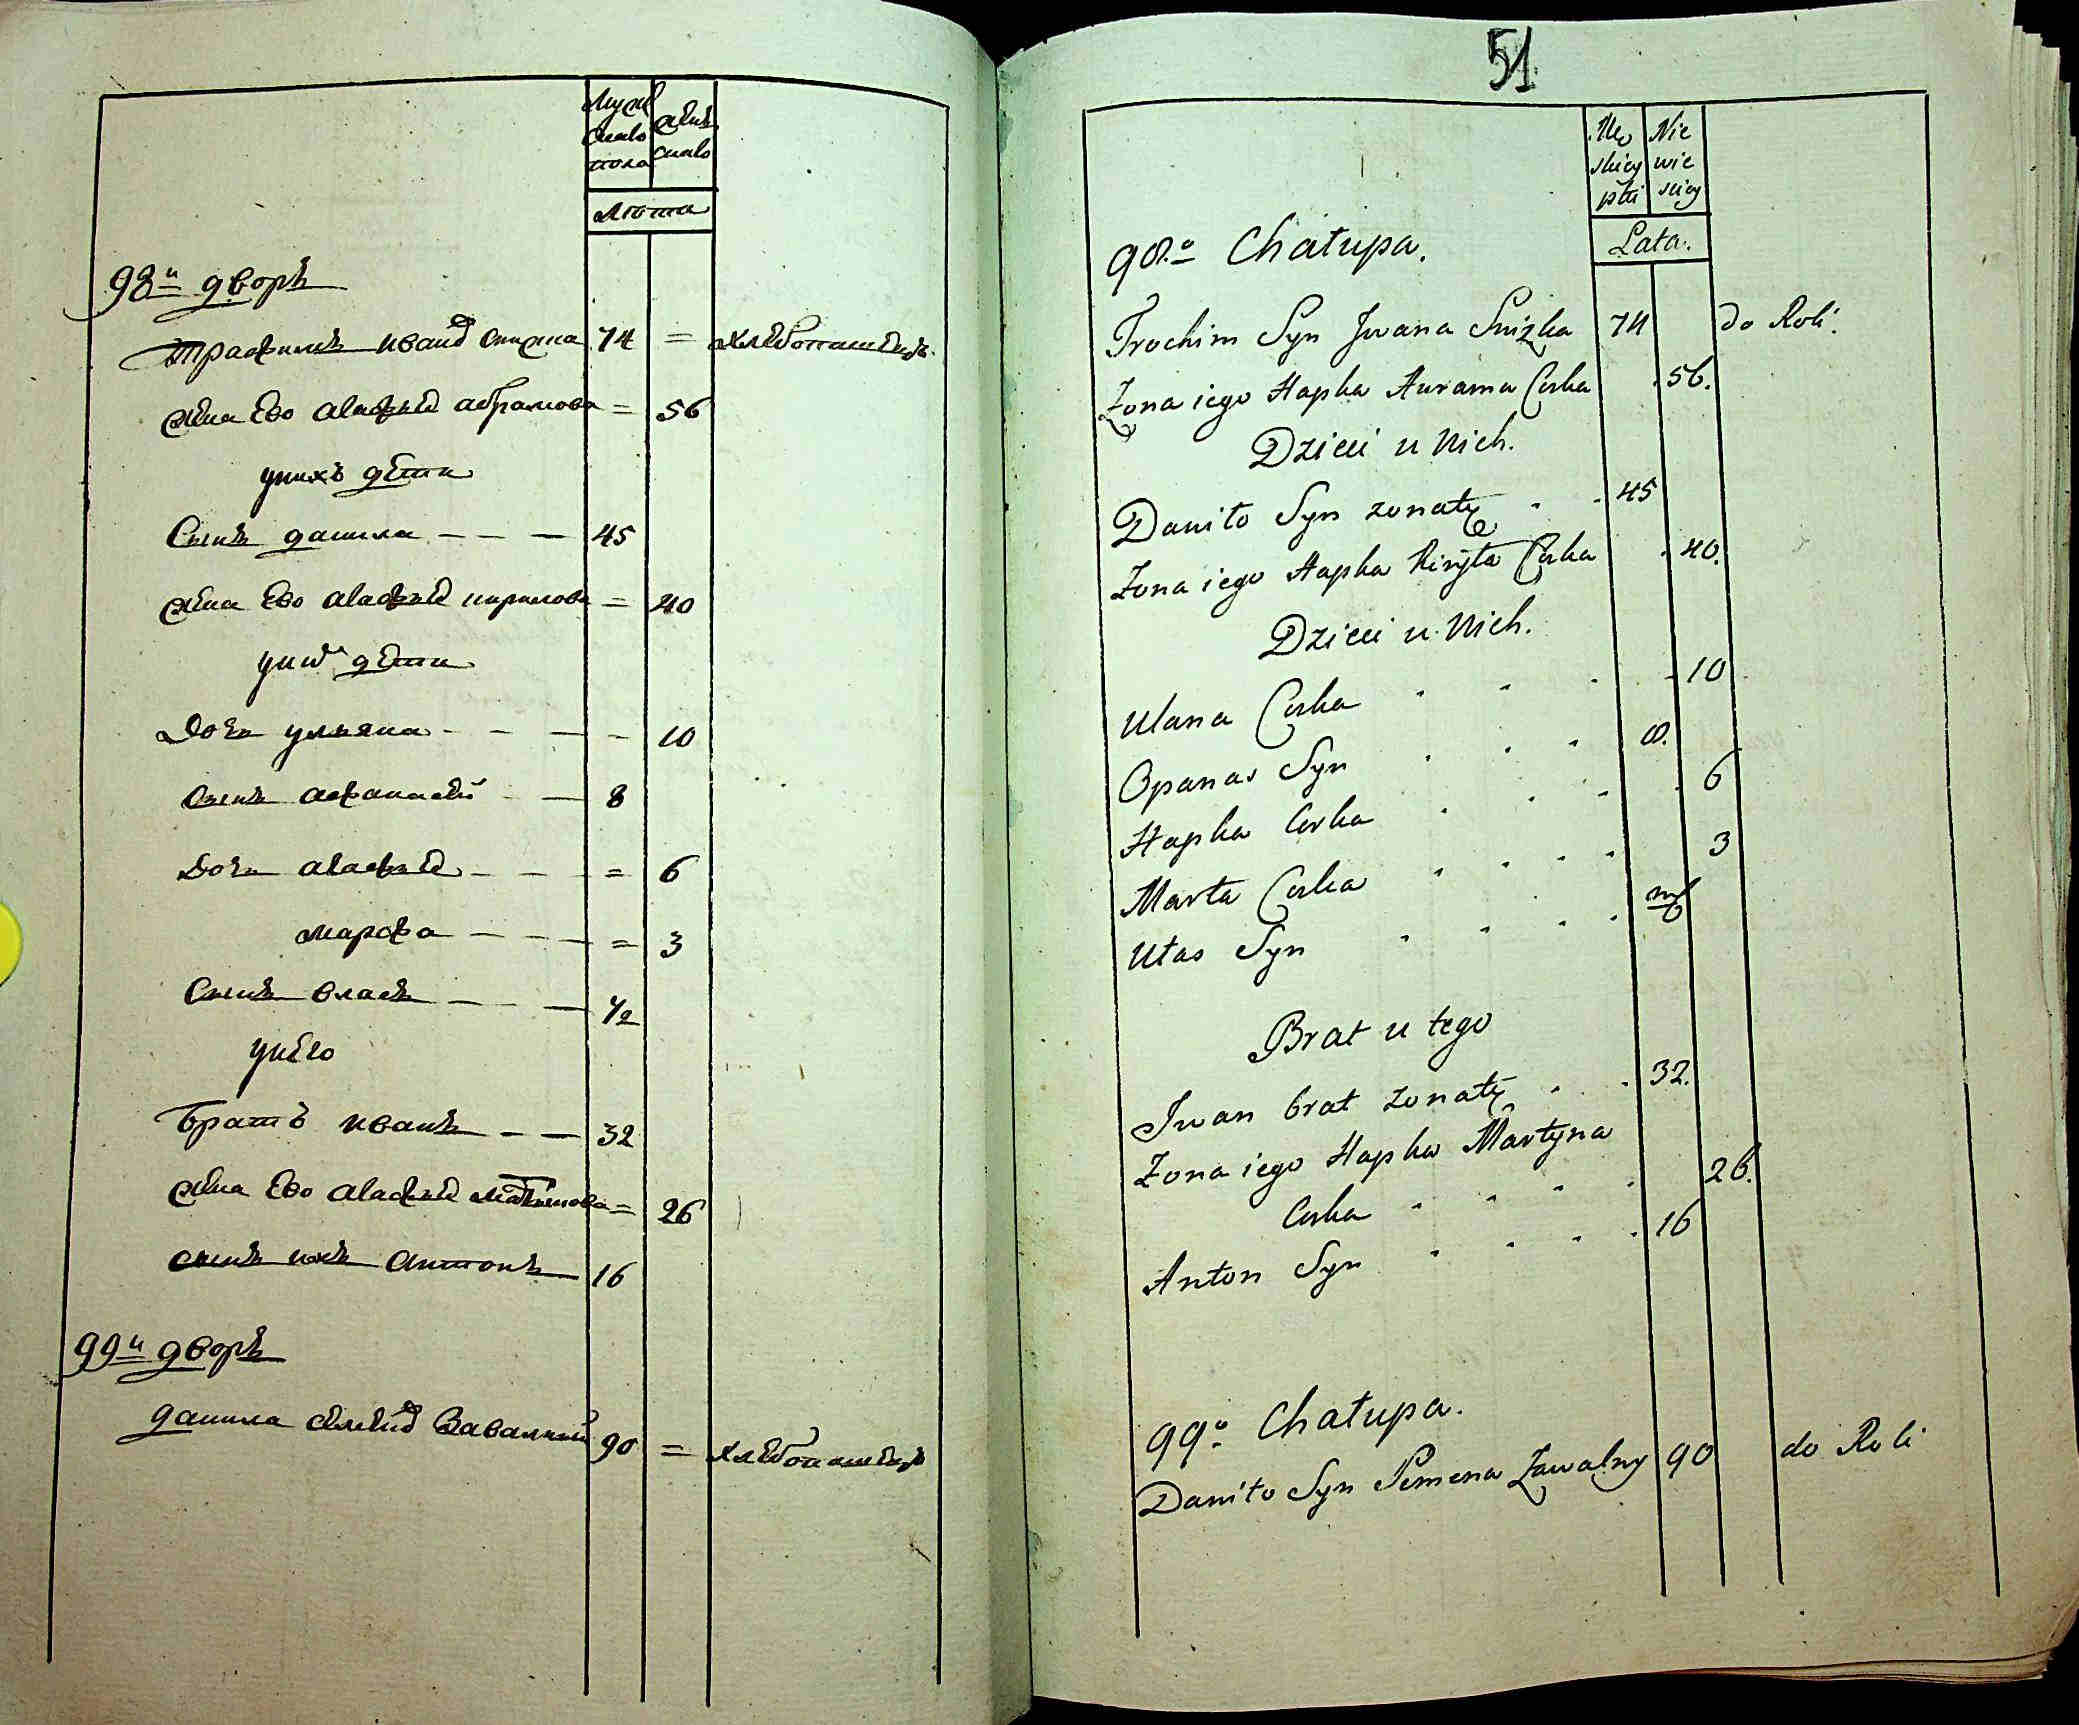 Муже
скаго
пола
женс
скаго
Лѣта
98й дворъ
Трафимъ Иванов Снижка 74 = хлѣбопашецъ
жена Ево Агафья абрамова = 56
унихъ дѣти
Сынъ данила — — — 45
жена Ево Агафья кирилова = 40
унихъ дѣти
Дочь ульяна - - — - 10
Сынъ афанасей - — 8
Дочь агафья - — = 6
марфа — - — = 3
Сынъ власъ — — — 1/2
унего
Братъ иванъ — — 32
жена Ево агафья мартынова = 26
сынъ ихъ антонъ 16
99й дворъ
данила Завалний 90 = хлѣбопашецъ
51
Mę
skiey
płci
Nie
wie
sciey
Lata.
98.o Chałupa.
Trochim Syn Jwana Snizka 74 do Roli.
Zona iego Hapka Aurama Corka . 56.
Dzieci u Nich.
Daniło Syn zonaty . . 45
Zona iego Hapka Kiryła Corka . 40.
Dzieci u Nich.
Ulana Corka . . . . 10
Opanas Syn . . . 8.
Hapka Corka . . . . 6
Marta Corka . . . . 3
Ułas Syn . . . . mc
Brat u tego
Jwan brat zonaty . . 32.
Zona iego Hapka Martyna
Corka . . . . 26.
Anton Syn . . . . 16
99.o Chałupa.
Daniło Syn Semena Zawalny 90 do Roli